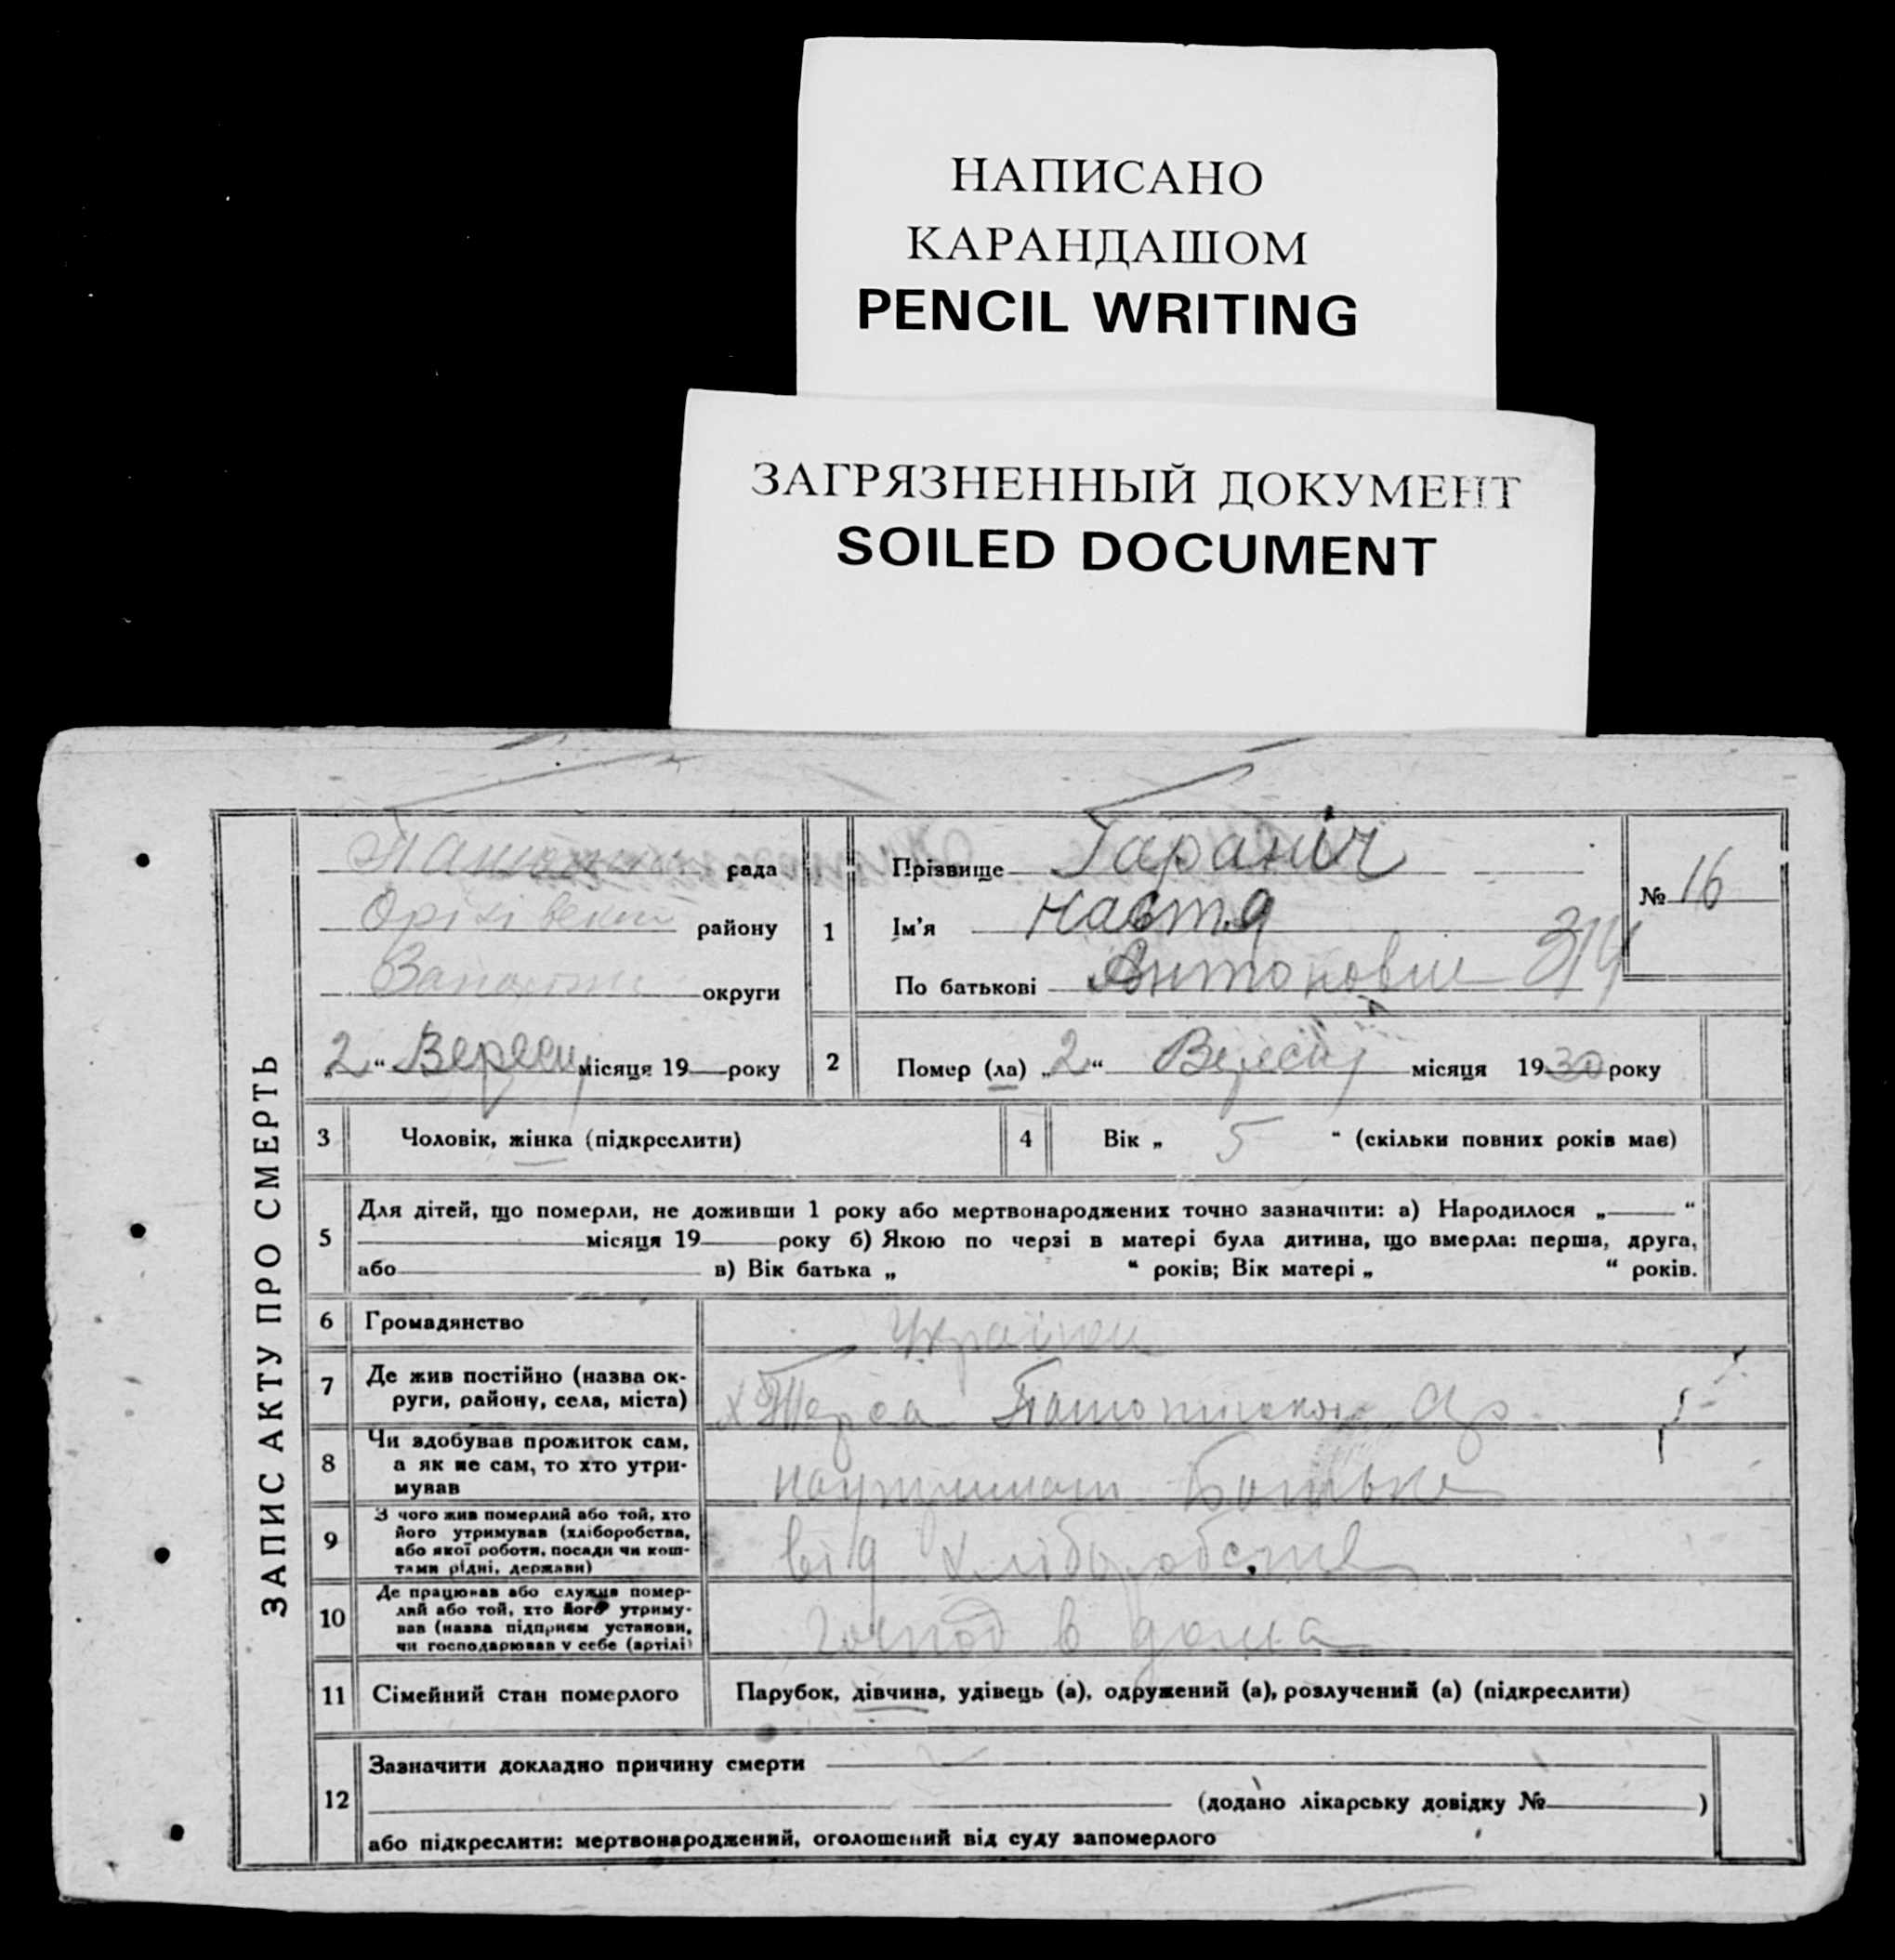 НАПИСАНО
КАРАНДАШОМ
PENCIL WRITING
ЗАГРЯЗНЕННЫЙ ДОКУМЕНТ
SOILED DOCUMENT
ЗАПИС АКТУ ПРО СМЕРТЬ
рада
району
округи
„2“ Вересн місяця 19 року
1
Прізвище Гаранич
Ім'я Настя
По батькові Антоновна 314
№ 16
2
Помер (ла) „2“ Вересня місяця 1930 року
3 Чоловік, жінка (підкреслити)
4 Вік „ 5 “ (скільки повних років має)
5
Для дітей, що померли, не доживши 1 року або мертвонароджених точно зазначити: а) Народилося „ “
місяця 19 року б) Якою по черзі в матері була дитина, що вмерла: перша, друга,
або в) Вік батька „ “ років; Вік матері „ “ років.
6 Громадянство
7 Де жив постійно (назва ок-
руги, району, села, міста)
х Терса
8 Чи здобував прожиток сам,
а як не сам, то хто утри-
мував
9 З чого жив померлий або той, хто
його утримував (хліборобства,
або якої роботи, посади чи кош-
тами рідні, держави)
від хліборобства
10 Де працював або служив помер-
лий або той, хто його утриму-
вав (назва підприєм установи,
чи господарював у себе (артілі)
господ в дома
11 Сімейний стан померлого
Парубок, дівчина, удівець (а), одружений (а), розлучений (а) (підкреслити)
12
Зазначити докладно причину смерти
(додано лікарську довідку № )
або підкреслити: мертвонароджений, оголошений від суду запомерлого